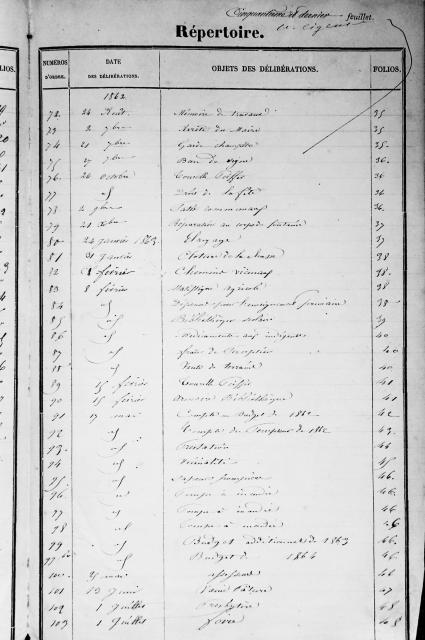 Cinquantième et dernier feuillet.
Répertoire.
NUMÉROS D'ORDRE. DATE DES DÉLIBÉRATIONS. OBJETS DES DÉLIBÉRATIONS. FOLIOS.
1862
72 24 Août Mémoire de travaux 35
73 2 7bre Arrêté du Maire 35
74 21 7bre Garde champêtre 35
75 27 7bre Ban de vigne 36
76 26 octobre 36
77 id 36
78 2 9bre 36
79 21 37
80 24 janvier 1863 Elagage 37
81 31 janvier Cloture de la chasse 38
82 1 février Chemins vicinaux 38
83 8 février agricole 38
84 id Dépense pour l'enseignement primaire 38
85 id Bibliothèque scolaire 39
86 id Médicaments aux indigents 40
87 id frais de 40
88 id Vente de terrain 40
89 15 février 41
90 15 février Armoire Bibliothèque 41
91 17 mai Compte et Budget de 1862 42
92 id Compte du Percepteur de 1862 43
93 id Prestation 44
94 id Vicinalité 45
95 id Sapeurs pompiers 46
96 id Pompe à incendie 46
97 id Pompe à incendie 46
98 id Pompe à incendie 46
99 id Budget additionnel de 1863 46
99 bis id Budget de 1864 46
100 25 mai 46
101 13 juin Vaine Pâture 47
102 1 juillet Presbytère 48
103 1 juillet foire 48